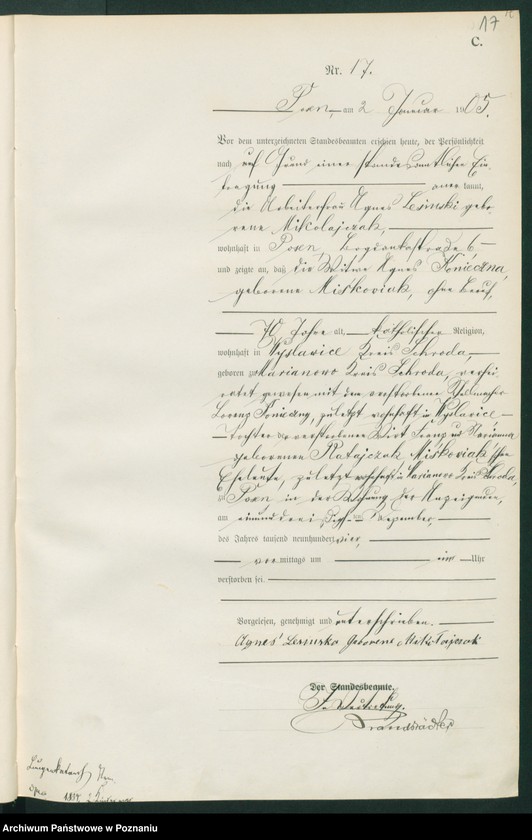 17
C.
Nr. 17.
Posen, am 2 Januar 1905.
Vor dem unterzeichneten Standesbeamten erschien heute, der Persönlichkeit
nach auf Grund einer standesamtlichen Ein-
tragung anerkannt,
die Arbeiterfrau Agnes Lesinski gebo-
rene Mikolajczak,
wohnhaft in Posen, 6,
und zeigte an, daß die Witwe Agnes Konieczna,
geborene Miśkoviak, ohne Beruf,
70 Jahre alt, katholischer Religion,
wohnhaft in Wyslavice Kreis Schroda,
geboren zu Marianowo Kreis Schroda, verhei-
ratet gewesen mit dem verstorbenen
Lorenz Konieczny, zuletzt wohnhaft in Wyslavice
Tochter der verstorbenen Wirt Franz und Marianna
geborenen Ratajczak Miśkoviak'schen
Eheleute, zuletzt wohnhaft in Marianowo Kreis Schroda,
zu Posen in der Wohnung der Anzeigenden,
am einunddreißigsten Dezember
des Jahres tausend neunhundert vier,
vormittags um ein Uhr
verstorben sei.
Vorgelesen, genehmigt und unterschrieben.
Agnes Lesinska geborene Mikołajczak
Der Standesbeamte.
In Vertretung.
Brandstädter
Archiwum Państwowe w Poznaniu